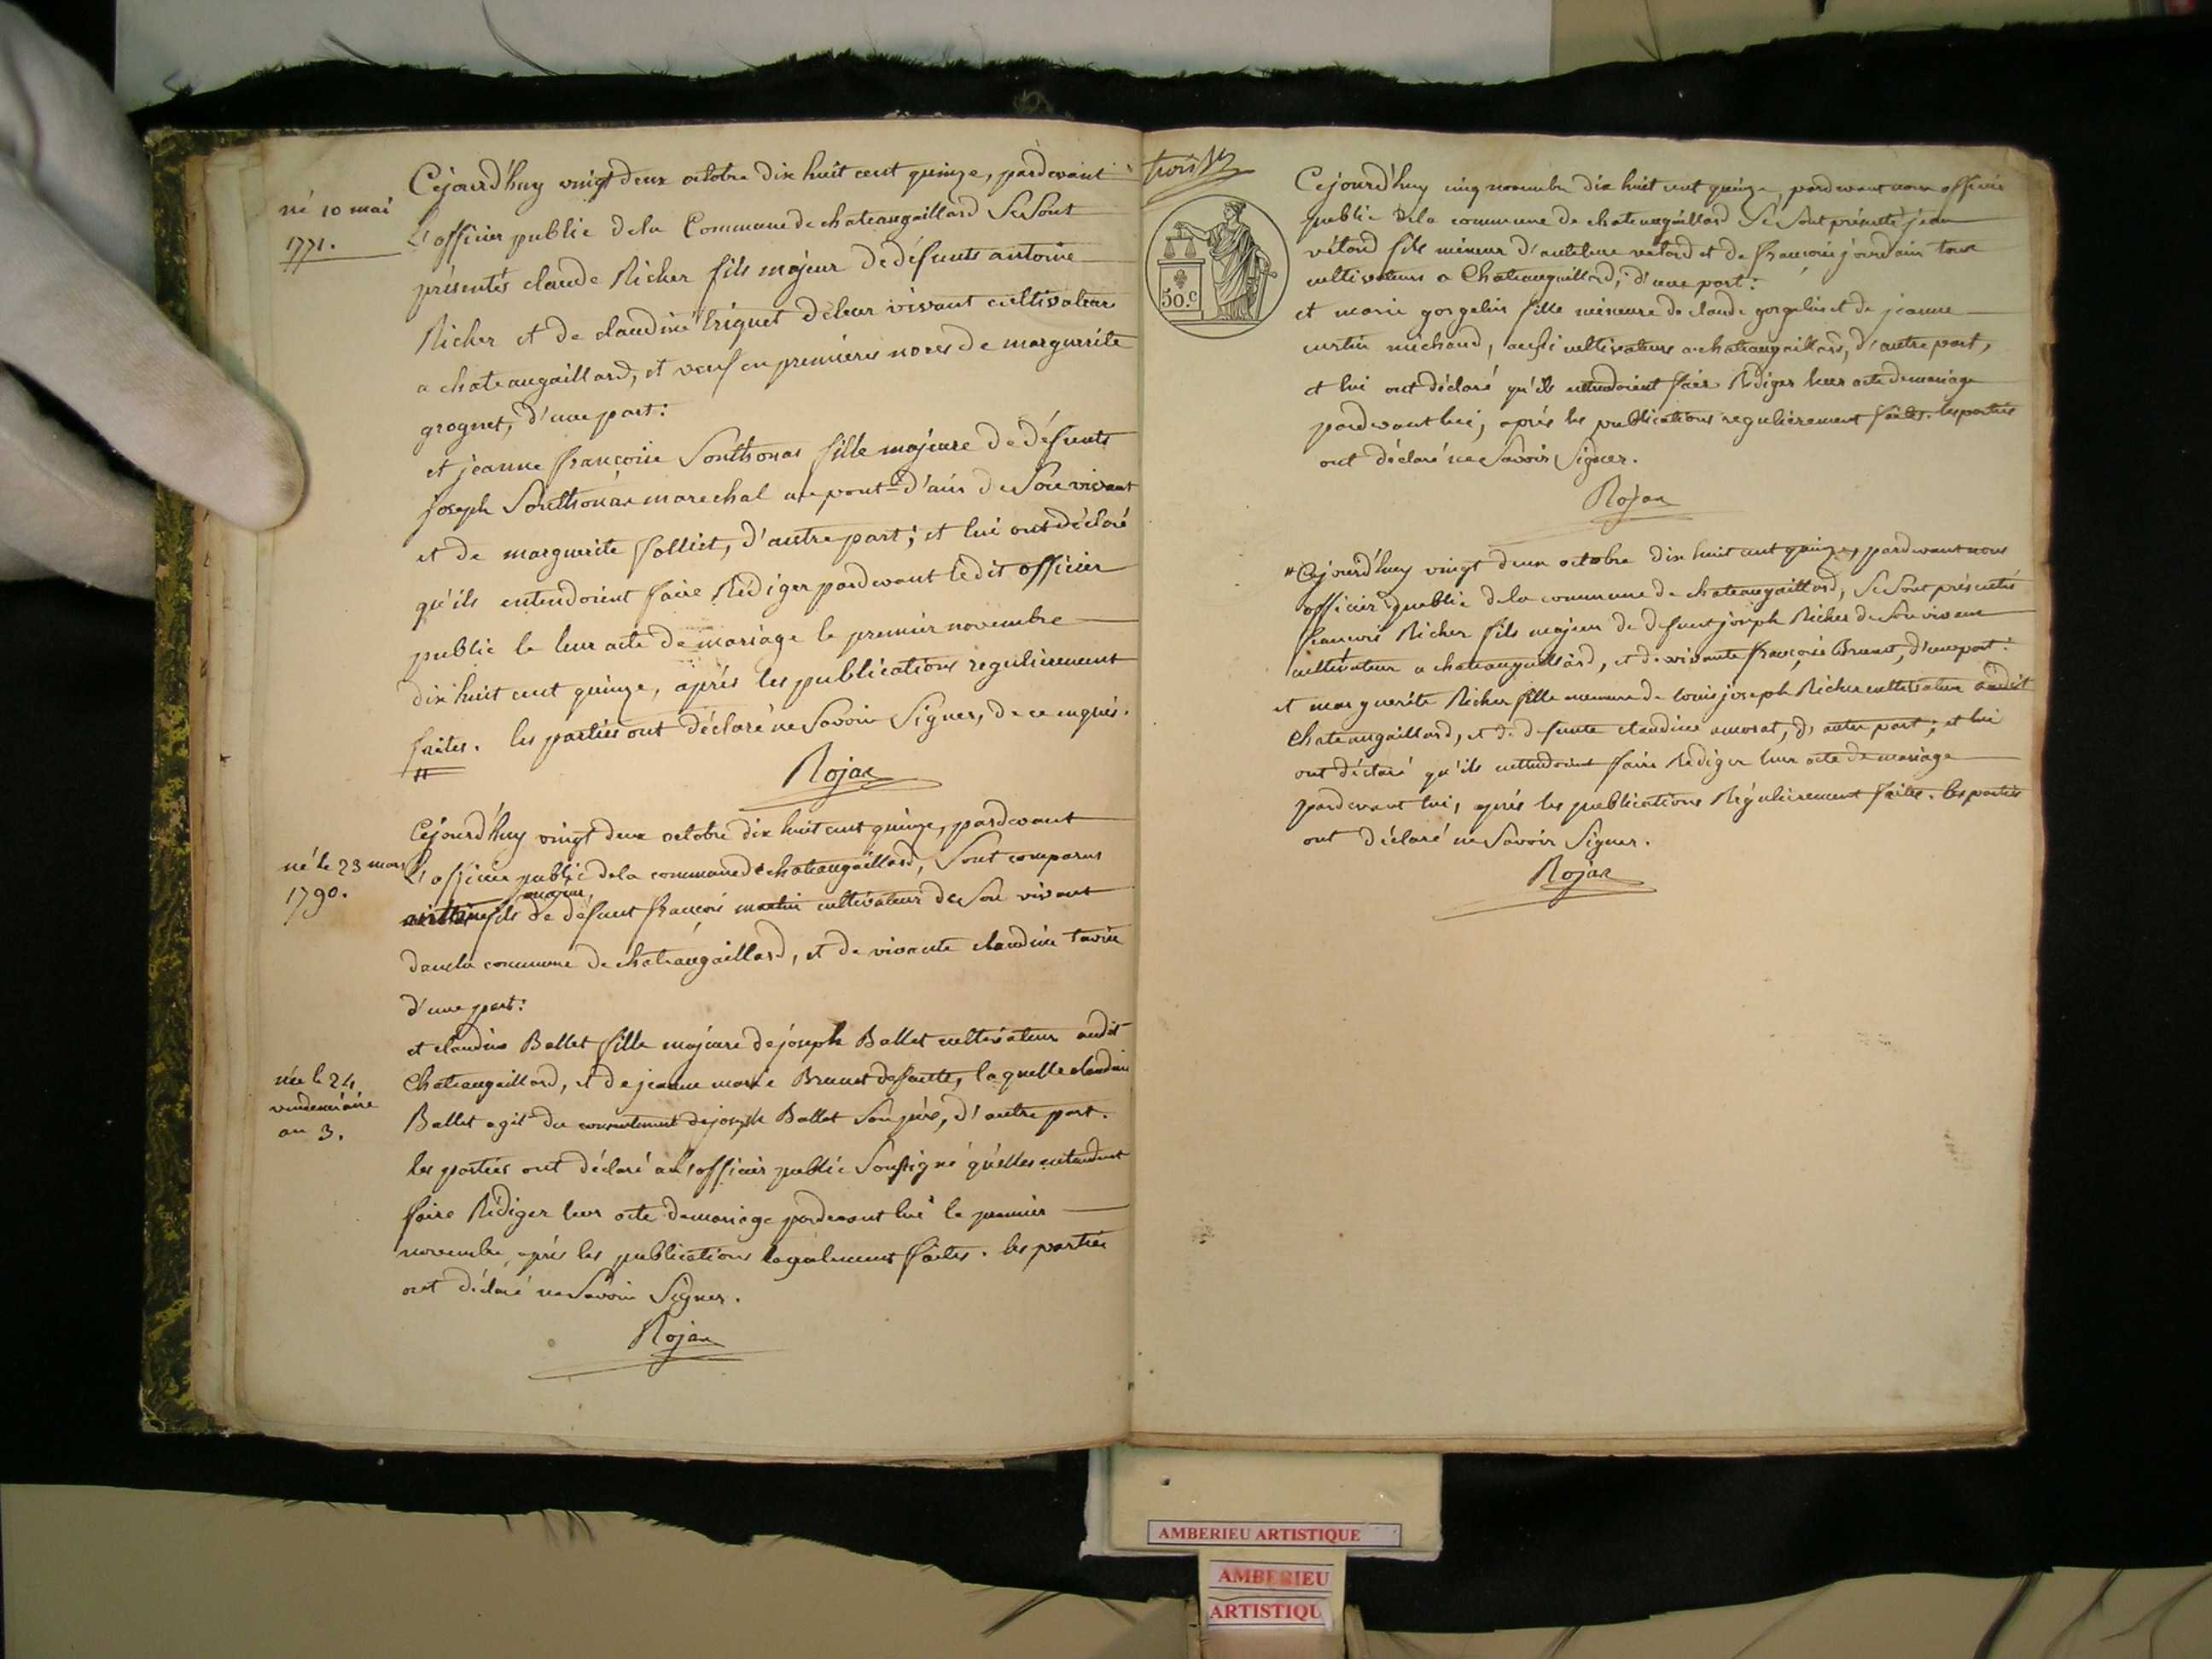 né 10 mai
1771.
Cejourd'huy vingt deux octobre dix huit cent quinze, pardevant
L'officier public dela Commune de chateaugaillard Se Sont
présentés claude Richer fils majeur de défunts antoine
Richer et de claudine triquet deleur vivant cultivateur
a chateaugaillard, et veuf en premieres noces de marguerite
grognet, d'une part:
et jeanne francoise Sonthonas fille majeure de défunts
joseph Sonthonas marechal au pont-d'ain de Son vivant
et de marguerite folliet, d'autre part; et lui ont déclaré
qu'ils entendoient faire Rédiger pardevant ledit officier
public le leur acte de mariage le premier novembre
dix huit cent quinze, aprés les publications regulierement
faites. les parties ont déclaré ne Savoir Signer, de ce enquis.
Rojax
né le 23 mars
1790.
Cejourd'huy vingt deux octobre dix huit cent quinze, pardevant
L'officier public dela commune de chateaugaillard, Sont comparus
majeur
fils de défunt françois martin cultivateur de Son vivant
dans la commune de chateaugaillard, et de vivante claudine
d'une part:
et claudine Ballet fille majeure de joseph Ballet cultivateur audit
née le 24
vendemiaire
an 3.
Chateaugaillard, et de jeanne marie Brunet defunte, laquelle claudine
Ballet agit du consentement de joseph Ballet Son père, d'autre part.
les parties ont déclaré a l'officier public Soussigné qu'elles entendent
faire Rédiger leur acte demariage pardevant lui le premier
novembre, aprés les publications legalement faites. les parties
ont déclaré ne Savoir Signer.
Rojax
trois
50.c
Cejourd'huy cinq novembre dix huit cent quinze, pardevant nous officier
public dela commune de chateaugaillard Se Sont présenté jean
vétard fils mineur d'anthelme vetard et de francoise jourdain tous
cultivateurs a Chateaugaillard, d'une part:
et marie gorgelin fille mineure de claude gorgelin et de jeanne
michaud, aussi cultivateurs a chateaugaillard, d'autre part,
et lui ont déclaré qu'ils entendoient faire Rédiger leur acte demariage
pardevant lui, aprés les publications regulierement faites. les parties
ont déclaré ne Savoir Signer.
Rojax
Cejourd'huy vingt deux octobre dix huit cent quinze, pardevant nous
officier public dela commune de chateaugaillard, Se Sont présentés
francois Richer fils majeur de defunt joseph Richer de Son vivant
cultivateur a chateaugaillard, et de vivante françoise Brunet, d'une part:
et marguerite Richer fille mineure de louis joseph Richer cultivateur audit
Chateaugaillard, et de defunte claudine, d'autre part; et lui
ont déclaré qu'ils entendoient faire Rédiger leur acte de mariage
pardevant lui, aprés les publications Régulierement faites. les parties
ont déclaré ne Savoir Signer.
Rojax
AMBERIEU ARTISTIQUE
AMBERIEU
ARTISTIQU